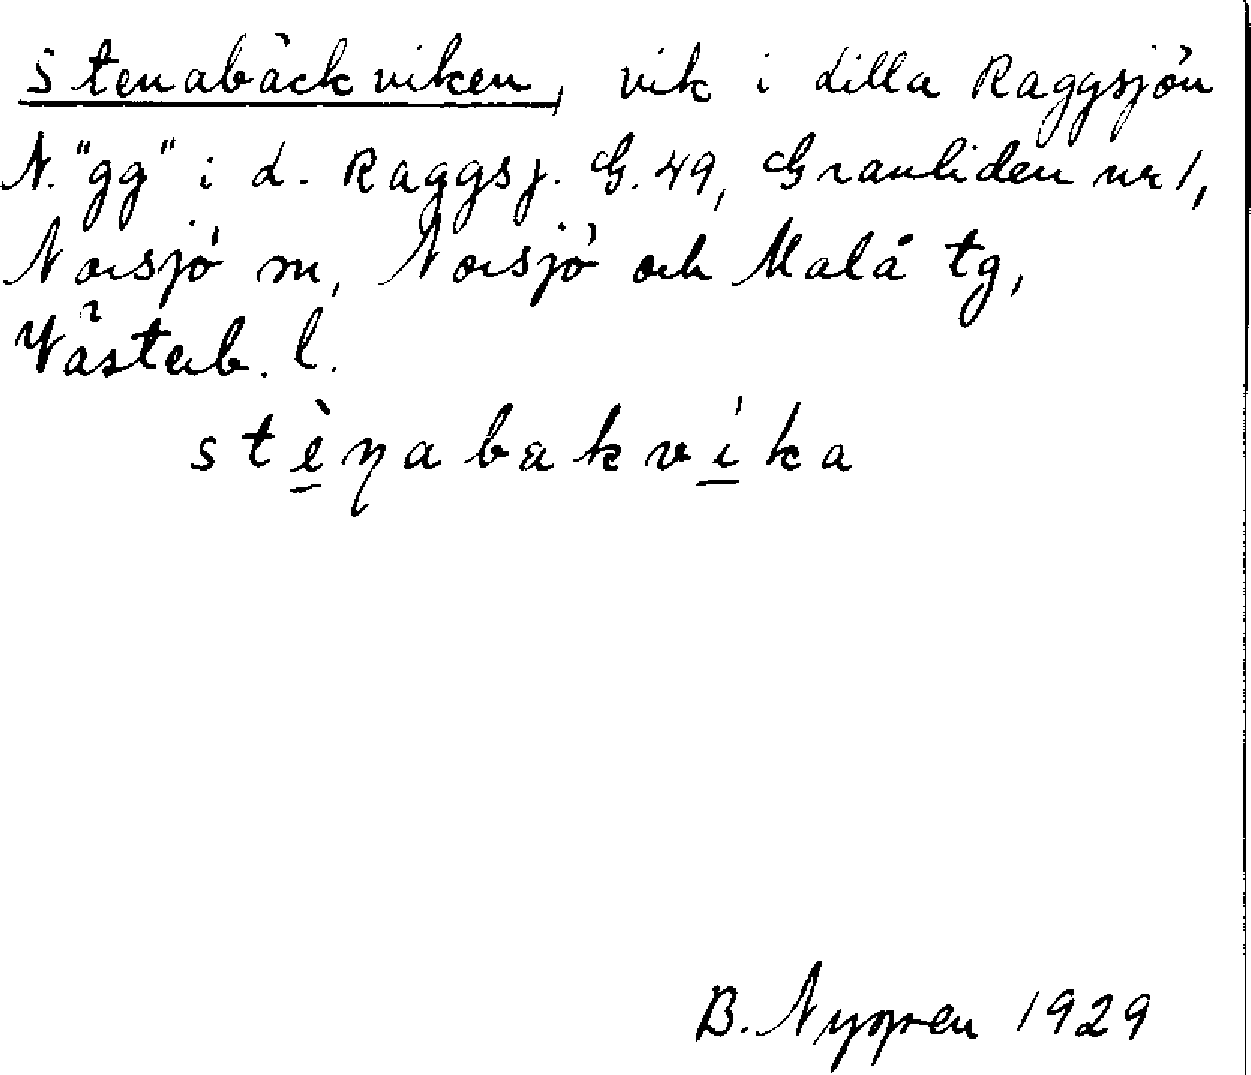 Stenabäckviken, vik i Lilla Raggsjön
N. "gg" i L. Raggsj. G. 49, Granliden nr 1,
Norsjö sn, Norsjö och Malå tg,
Västerb. l.
stèṇabakvíka
B. Nygren 1929